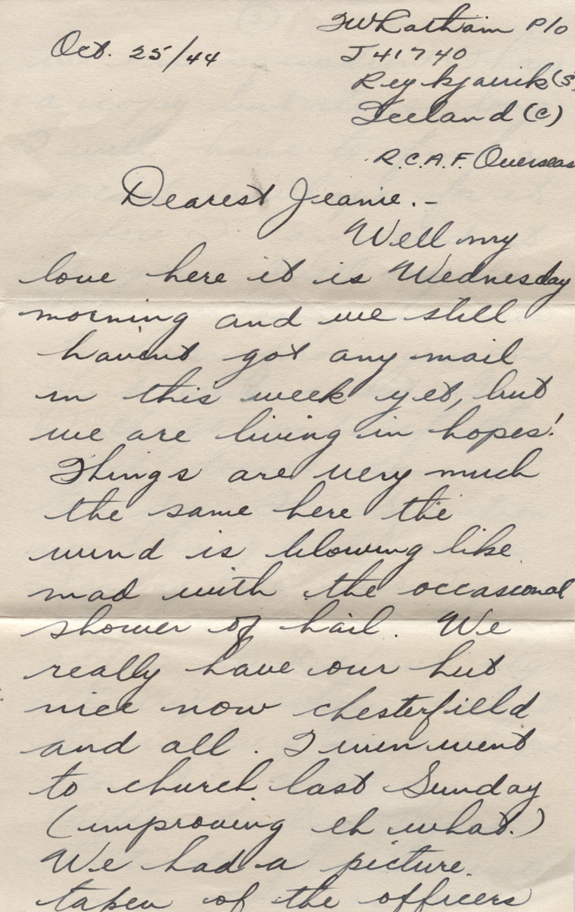 Oct. 25/44
JW Latham P/O
J41740
Reykjavik (S
Iceland (C)
R.C.A.F. Overseas
Dearest Jeanie.-
Well my
love here it is Wednesday
morning and we still
havent got any mail
in this week yet, but
we are living in hopes!
Things are very much
the same here the
wind is blowing like
mad with the occasional
shower of hail. We
really have our hut
nice now chesterfield
and all. I even went
to church last Sunday
(improving eh what.)
We had a picture
taken of the officers